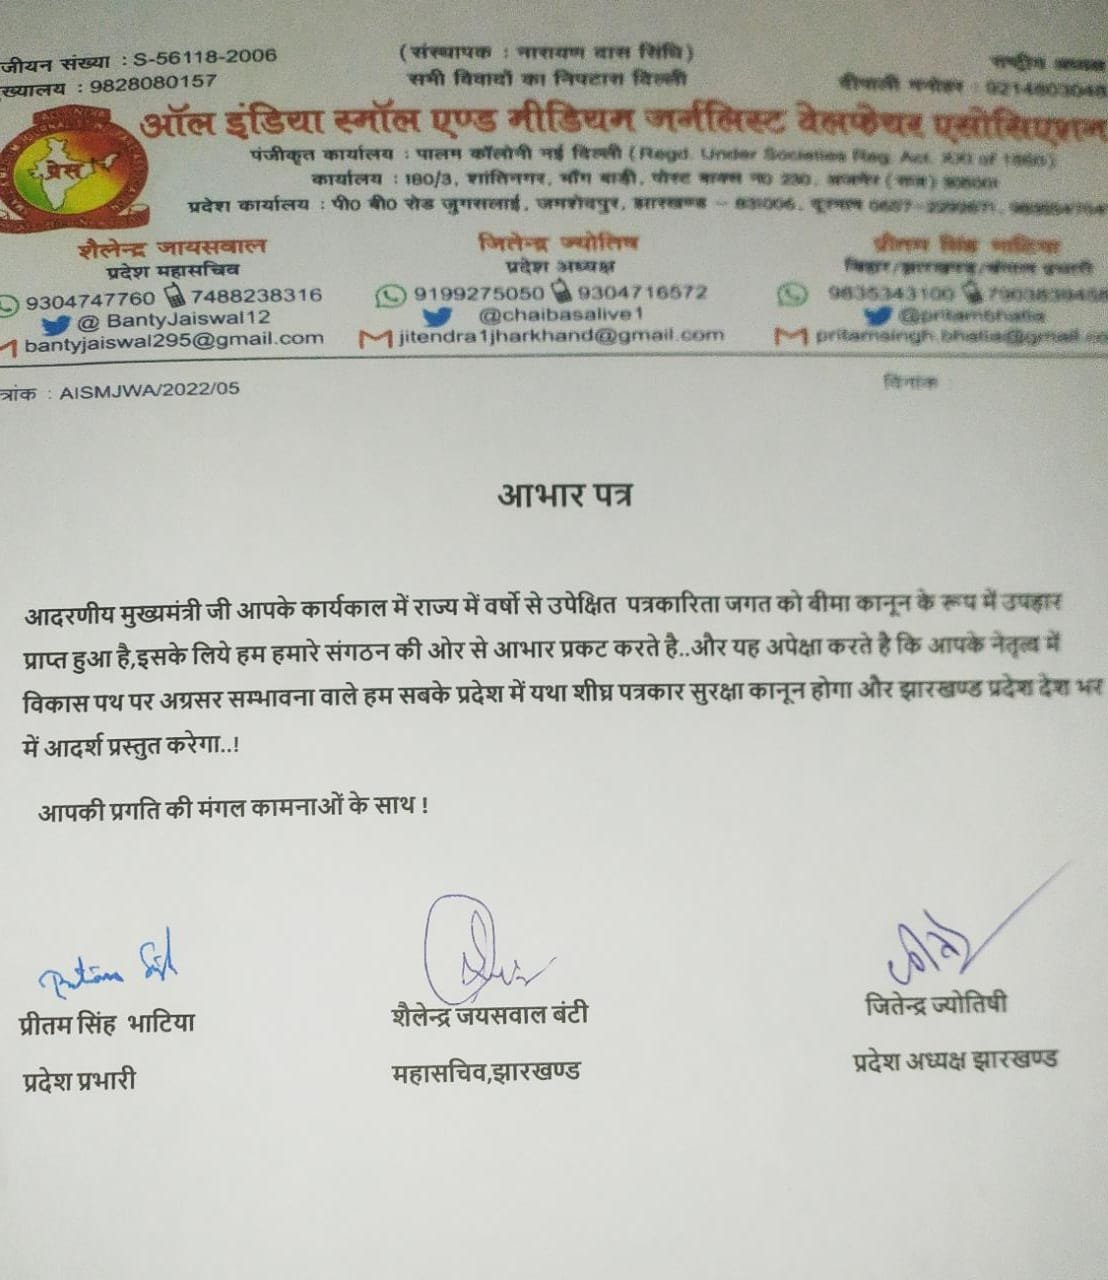 जीयन संख्या : S-56118-2006
(संस्थापक : नारायण दास सिंधि)
राष्ट्रीय अध्यक्ष
ख्यालय : 9828080157
सभी विवादों का निपटारा दिल्ली
ऑल इंडिया स्मॉल एण्ड मीडियम जर्नलिस्ट वेलफेयर एसोसिएशन
प्रेस
पंजीकृत कार्यालय : पालम कॉलोनी नई दिल्ली (Regd. Under Societies Reg. Act. XXI of 1860)
कार्यालय : 180/3, शांतिनगर, भौंग बाड़ी, पोस्ट बाक्स न0 230, अजमेर (राज)
प्रदेश कार्यालय : पी0 बी0 रोड जुगसलाई, जमशेदपुर, झारखण्ड - 831006,
शैलेन्द्र जायसवाल
जितेन्द्र ज्योतिष
प्रीतम सिंह भाटिया
प्रदेश महासचिव
प्रदेश अध्यक्ष
बिहार/झारखण्ड/बंगाल प्रभारी
9304747760 7488238316
9199275050 9304716572
9835343100
@ BantyJaiswal12
@chaibasalive1
@pritambhatia
bantyjaiswal295@gmail.com
jitendra1jharkhand@gmail.com
pritamsingh.bhatia@gmail.co
त्रांक : AISMJWA/2022/05
दिनांक
आभार पत्र
आदरणीय मुख्यमंत्री जी आपके कार्यकाल में राज्य में वर्षो से उपेक्षित पत्रकारिता जगत को बीमा कानून के रूप में उपहार
प्राप्त हुआ है,इसके लिये हम हमारे संगठन की ओर से आभार प्रकट करते है..और यह अपेक्षा करते है कि आपके नेतृत्व में
विकास पथ पर अग्रसर सम्भावना वाले हम सबके प्रदेश में यथा शीघ्र पत्रकार सुरक्षा कानून होगा और झारखण्ड प्रदेश देश भर
में आदर्श प्रस्तुत करेगा..!
आपकी प्रगति की मंगल कामनाओं के साथ !
प्रीतम सिंह भाटिया
शैलेन्द्र जयसवाल बंटी
जितेन्द्र ज्योतिषी
प्रदेश प्रभारी
महासचिव,झारखण्ड
प्रदेश अध्यक्ष झारखण्ड